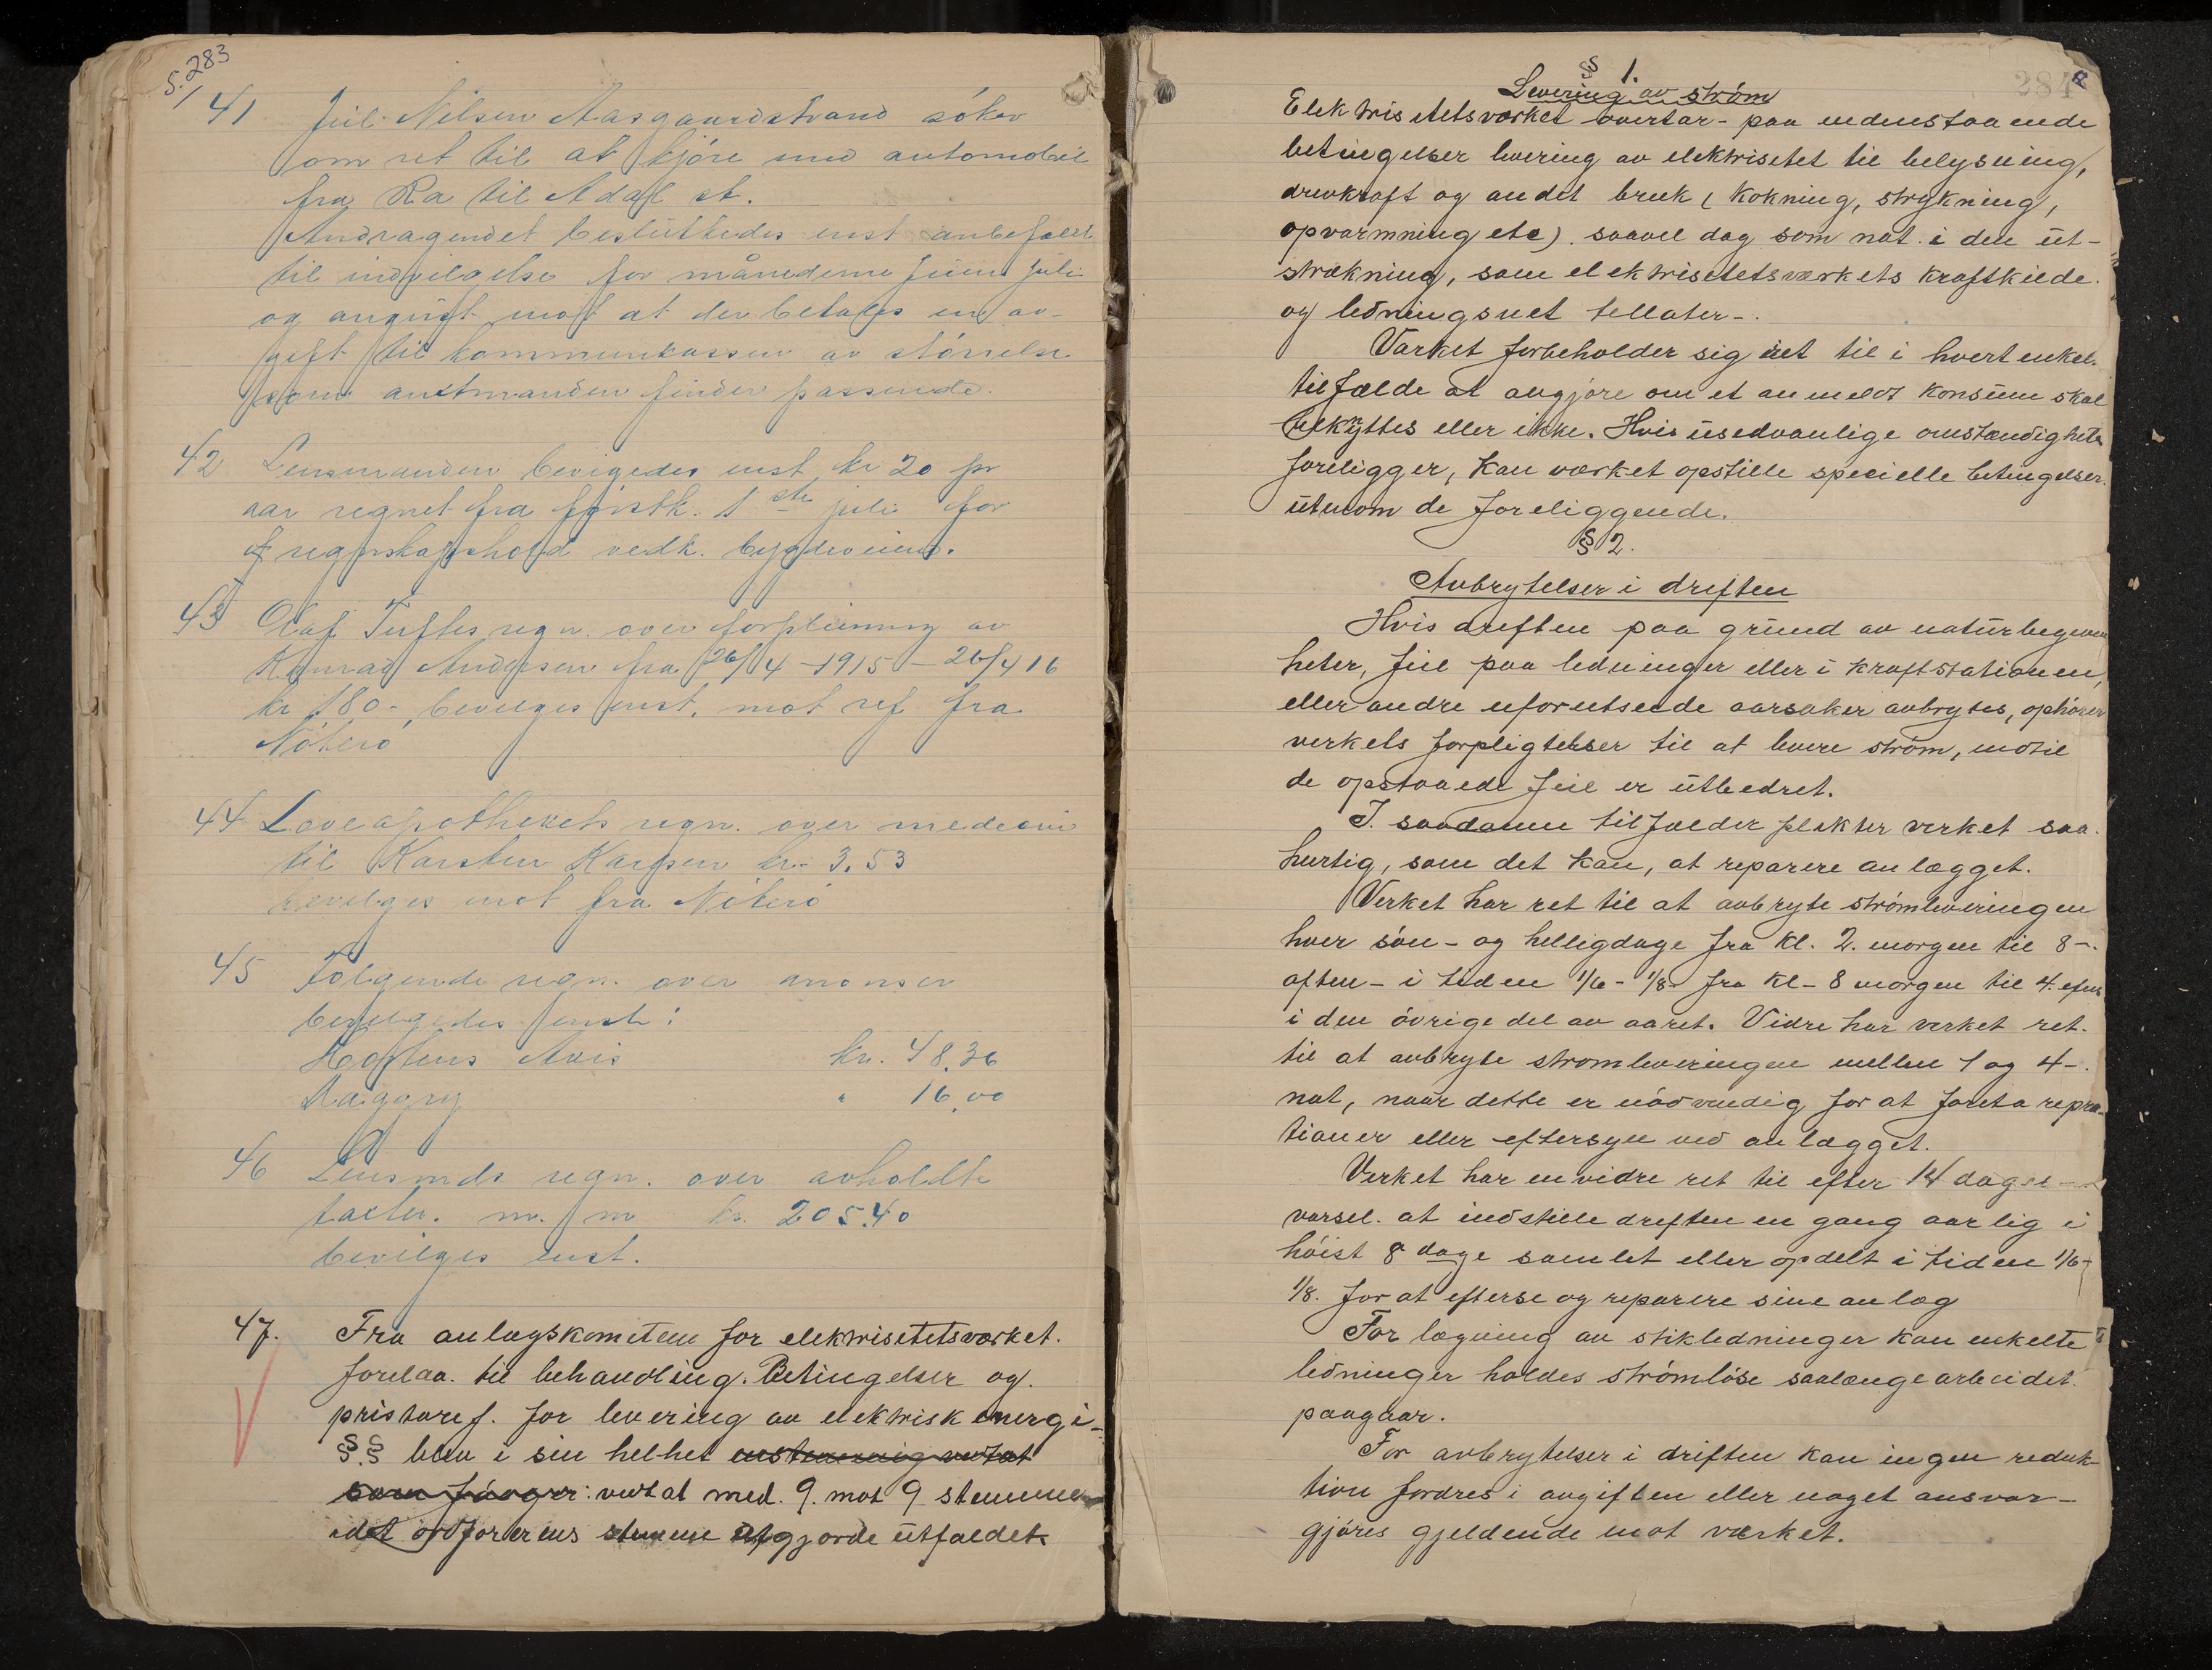 S. 283
41 Jul. Nilsen Aasgaardstrand søker
om ret til at kjøre med automobil
fra Ra til Adal st.
Andragendet besluttedes enst anbefalet
til indvilgelse for månederne juni juli
og august mot at der betales en av-
gift til kommunekassen av størrelse
som amtmanden finder passende.
42 Lensmanden bevigedes enst kr 20 pr
aar regnet fra førstk. 1ste juli for
regnskapshold vedk. bygdeveiene.
43 Olaf Tuftes regn. over forpleining av
Konrad Andresen fra 26/4 - 1915 - 26/4 16
kr 180 - bevilges enst. mot ref fra
Nøterø
44 Løveapothekets regn. over medecin
til Karsten Karlsen kr. 3.53
bevilges mot fra Nøterø
45 Følgende regn. over anonser
bevilgedes enst:
Hortens Avis kr. 48.36
Dagny " 16,00
46 Lensmds regn. over avholdte
takster. m. m kr. 205.40
bevilges enst.
47. Fra anlægskomiteen for elektrisetetsværket.
forelaa. til behandling. Betingelser og.
pristarif. for levering av elektrisk energi-
§§ blev i sin helhet enstemmig vedtat
som følger: vedtat med. 9. mot 9 stemmer
idet ordførerens stemme utgjorde utfaldet.
284
§ 1.
Levering av strøm
Elektrisitetsværket overtar - paa nedenstaaende
betingelser levering av elektrisetet til belysning,
drivkraft og andet bruk (kokning, strykning,
opvarmning etc). saavel dag som nat i den ut-
strækning, som elektrisetetsværkets kraftkilde.
og ledningsnet tillater-.
Værket forbeholder sig ret til i hvert enkel.
tilfælde at avgjøre om et anmeldt konsum skal
beknyttes eller ikke. Hvis usedvanlige omstændigheter
foreligger, kan værket opstille specielle betingelser.
utenom de foreliggende.
§ 2.
Avbrytelser i driften
Hvis driften paa grund av naturbegiven
heter, feil paa ledninger eller i kraftstationen,
eller andre uforutseede aarsaker avbrytes, ophører
verkets forpligtelser til at levere strøm, indtil
de opstaaede feil er utbedret.
I. saadanne tilfælder plikter verket saa.
hurtig, som det kan, at reparere anlægget.
Verket har ret til at avbryte strømleveringen
hver søn- og helligdage fra kl. 2. morgen til 8-.
aften - i tiden 1/6 - 1/8- fra kl - 8 morgen til 4. efm
i den øvrige del av aaret. Vidre har verket ret.
til at avbryte strømleveringen mellem 1 og 4-.
nat, naar dette er nødvendig for at foreta repra-
tioner eller eftersyn ved anlægget.
Verket har envidre ret til efter 14 dages -
varsel. at indstille driften en gang aarlig i
høist 8 dage samlet eller opdelt i tiden 1/6 -
1/8. for at efterse og reparere sine anlæg
For lægning av stikledninger kan enkelte
ledninger holdes strømløse saalænge arbeidet.
paagaar.
For avbrytelser i driften kan ingen reduk-
tion fordres i avgiften eller noget ansvar-
gjøres gjeldende mot værket.